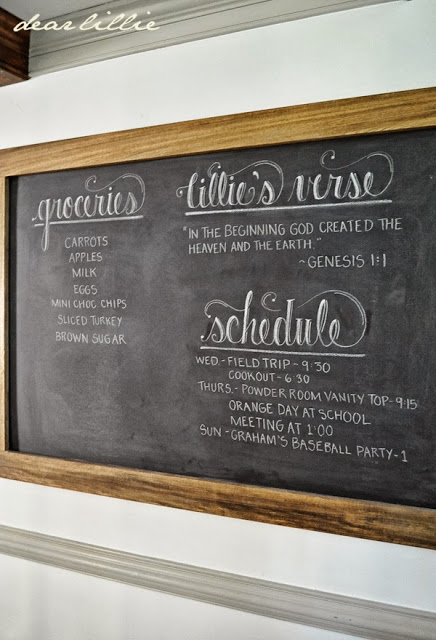 dear lillie
groceries
CARROTS
APPLES
MILK
EGGS
MINI CHOC CHIPS
SLICED TURKEY
BROWN SUGAR
lillie's verse
"IN THE BEGINNING GOD CREATED THE
HEAVEN AND THE EARTH."
~GENESIS 1:1
schedule
WED.-FIELD TRIP-9:30
COOKOUT-6:30
THURS.-POWDER ROOM VANITY TOP-9:15
ORANGE DAY AT SCHOOL
MEETING AT 1:00
SUN-GRAHAM'S BASEBALL PARTY-1